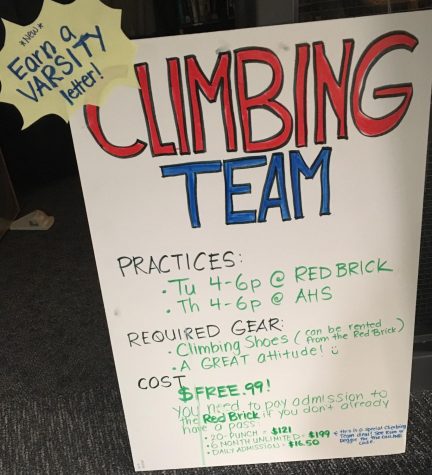 *NEW*
Earn a
VARSITY
letter!
CLIMBING
TEAM
PRACTICES:
• Tu 4-6p @ RED BRICK
• Th 4-6p @ AHS
REQUIRED GEAR:
• Climbing Shoes (can be rented
from the Red Brick)
• A GREAT attitude! ☺
COST
$FREE.99!
You need to pay admission to
the Red Brick if you don't already
have a pass:
• 20-PUNCH = $121
• 6 MONTH UNLIMITED = $199
• DAILY ADMISSION = $16.50
* this is a special climbing
Team deal! See or
for the
code.